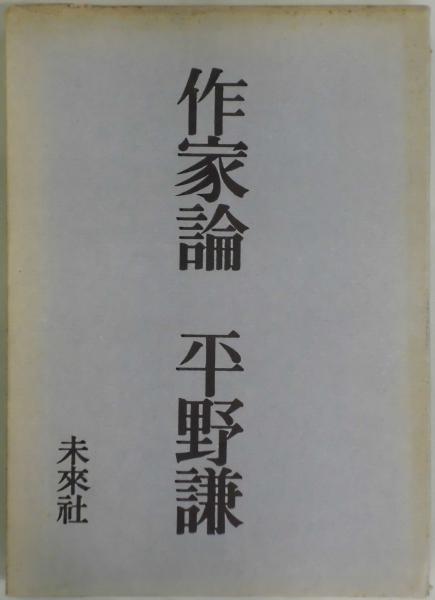 作家論 平野謙
未來社